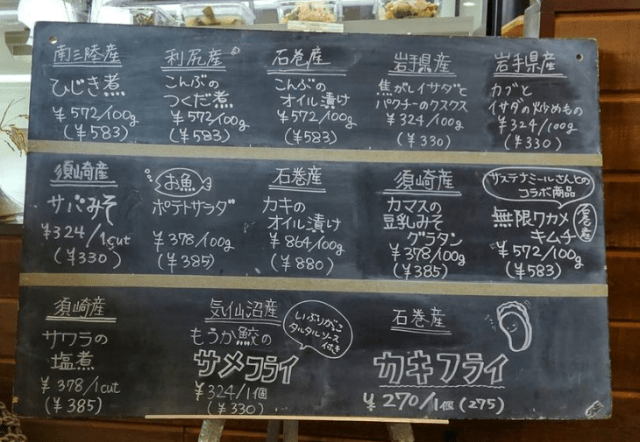 南三陸産
ひじき煮
¥572/100g
(¥583)
利尻産
こんぶの
つくだ煮
¥572/100g
(¥583)
石巻産
こんぶの
オイル漬け
¥572/100g
(¥583)
岩手県産
焦がしイサダと
パクチーのクスクス
¥324/100g
(¥330)
岩手県産
カブと
イサダの炒めもの
¥324/100g
(¥330)
須崎産
サバみそ
¥324/1cut
(¥330)
お魚
ポテトサラダ
¥378/100g
(¥385)
石巻産
カキの
オイル漬け
¥864/100g
(¥880)
須崎産
カマスの
豆乳みそ
グラタン
¥378/100g
(¥385)
サステナミールさんとの
コラボ商品
無限ワカメ
キムチ
石巻産
¥572/100g
(¥583)
須崎産
サワラの
塩煮
¥378/1cut
(¥385)
気仙沼産
もうか鮫の
サメフライ
いぶりがっこ
タルタルソース
付き
¥324/1個
(¥330)
石巻産
カキフライ
¥270/1個(275)